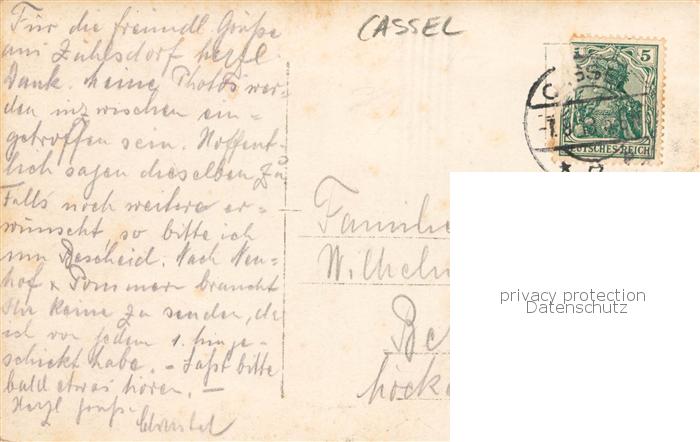 Für die freundl. Grüße
aus Zühlsdorf herzl.
Dank. Meine Photos wer-
den inzwischen ein-
getroffen sein. Hoffent-
lich sagen dieselben zu
Falls noch weitere er-
wünscht, so bitte ich
um Bescheid. Nach Neu-
hof & Pommern braucht
Ihr keine zu senden, da
ich von jedem 1. hinge-
schickt habe. - Laßt bitte
bald etwas hören. -
Herzl. Gruß
CASSEL
5
DEUTSCHES REICH
Familie
Wilhelm
Be
höck
privacy protection
Datenschutz